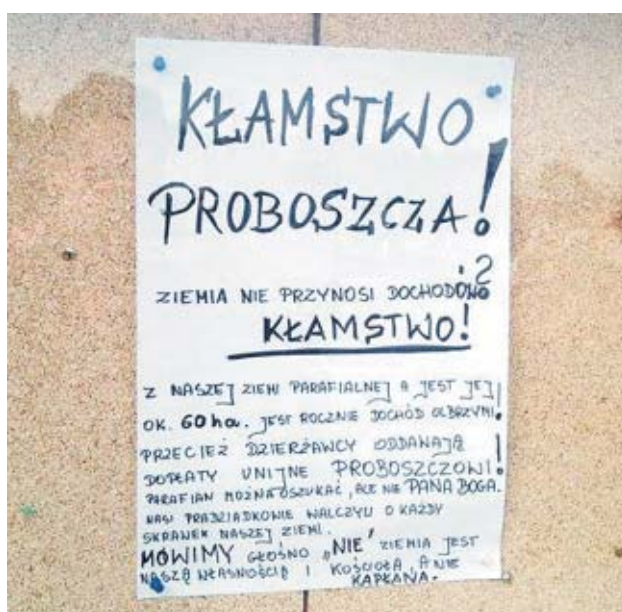 KŁAMSTWO
PROBOSZCZA!
ZIEMIA NIE PRZYNOSI DOCHODÓW?
KŁAMSTWO!
Z NASZEJ ZIEMI PARAFIALNEJ A JEST JEJ
OK. 60 ha. JEST ROCZNIE DOCHÓD OLBRZYMI!
PRZECIEŻ DZIERŻAWCY ODDAWAJĄ
DOPŁATY UNIJNE PROBOSZCZOWI!
PARAFIAN MOŻNA OSZUKAĆ, ALE NIE PANA BOGA.
NASI PRADZIADKOWIE WALCZYLI O KAŻDY
SKRAWEK NASZEJ ZIEMI.
MÓWIMY GŁOŚNO „NIE” ZIEMIA JEST
NASZĄ WŁASNOŚCIĄ I KOŚCIOŁA, A NIE
KAPŁANA.